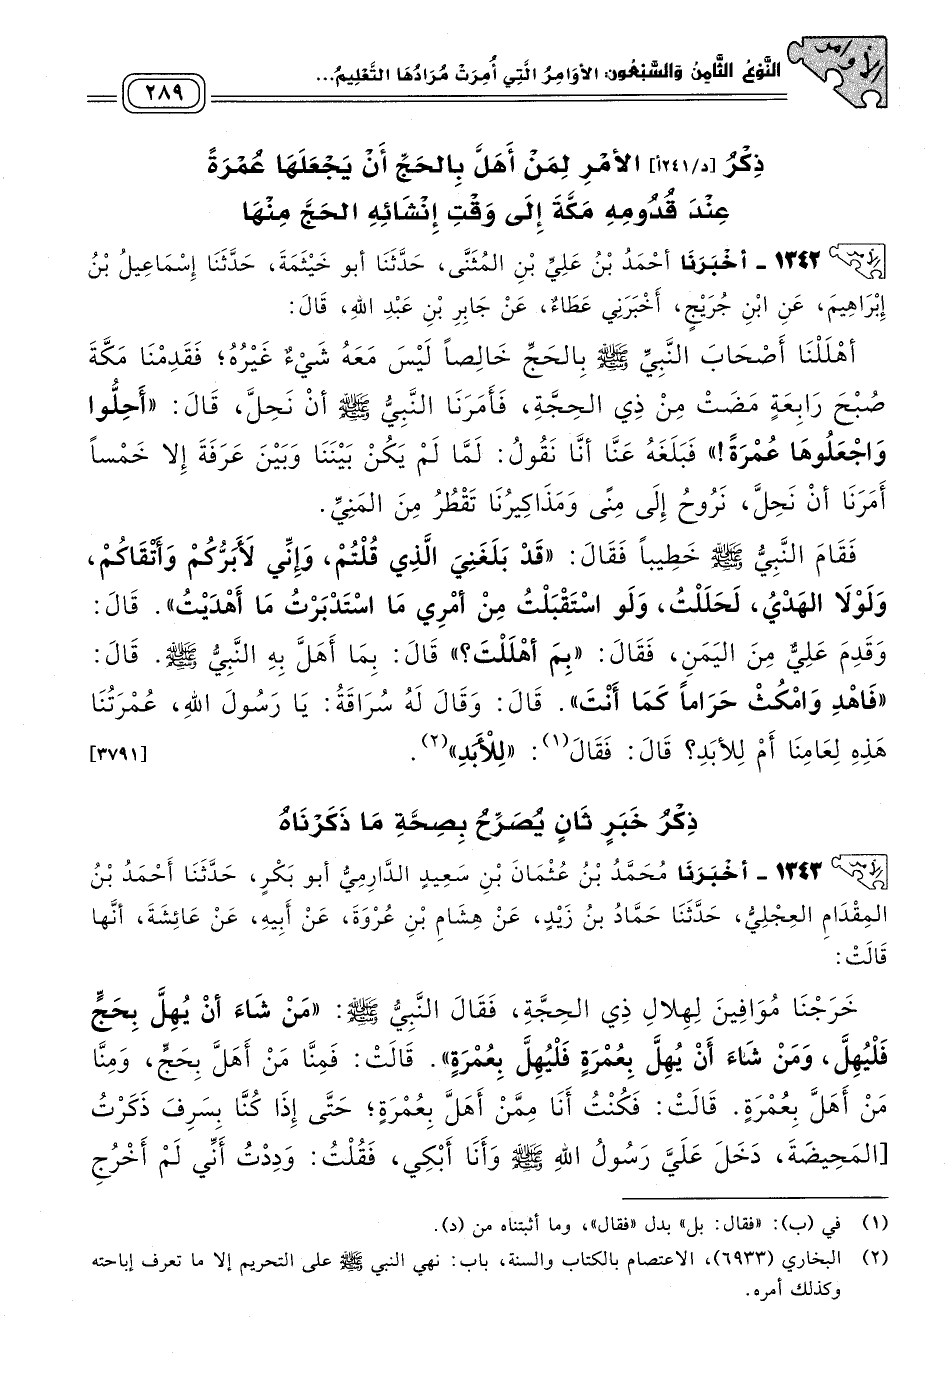 الأوامر
النَّوْعُ الثَّامِنُ وَالسَّبْعُون: الأوَامِرُ الَّتِي أُمِرَتْ مُرَادُهَا التَّعْلِيمُ...
٢٨٩
ذِكْرُ [د/٢٤١أ] الأمْرِ لِمَنْ أَهَلَّ بِالحَجِّ أَنْ يَجْعَلَهَا عُمْرَةً
عِنْدَ قُدُومِهِ مَكَّةَ إِلَى وَقْتِ إِنْشَائِهِ الحَجَّ مِنْهَا
١٣٤٢ - أخْبَرَنَا أحْمَدُ بْنُ عَلِيِّ بْنِ المُثَنَّى، حَدَّثَنَا أبو خَيْثَمَةَ، حَدَّثَنَا إسْمَاعِيلُ بْنُ
إبْرَاهِيمَ، عَنِ ابْنِ جُرَيْجٍ، أَخْبَرَنِي عَطَاءٌ، عَنْ جَابِرِ بْنِ عَبْدِ اللهِ، قَالَ:
أهْلَلْنَا أَصْحَابَ النَّبِيِّ ﷺ بِالحَجِّ خَالِصاً لَيْسَ مَعَهُ شَيْءٌ غَيْرُهُ؛ فَقَدِمْنَا مَكَّةَ
صُبْحَ رَابِعَةٍ مَضَتْ مِنْ ذِي الحِجَّةِ، فَأَمَرَنَا النَّبِيُّ ﷺ أنْ نَحِلَّ، قَالَ: «أَحِلُّوا
وَاجْعَلُوهَا عُمْرَةً!» فَبَلَغَهُ عَنَّا أنَّا نَقُولُ: لَمَّا لَمْ يَكُنْ بَيْنَنَا وَبَيْنَ عَرَفَةَ إلا خَمْساً
أَمَرَنَا أنْ نَحِلَّ، نَرُوحُ إلَى مِنًى وَمَذَاكِيرُنَا تَقْطُرُ مِنَ المَنِيِّ.
فَقَامَ النَّبِيُّ ﷺ خَطِيباً فَقَالَ: «قَدْ بَلَغَنِيَ الَّذِي قُلْتُمْ، وَإنِّي لَأَبَرُّكُمْ وَأَتْقَاكُمْ،
وَلَوْلَا الهَدْيُ، لَحَلَلْتُ، وَلَو اسْتَقْبَلْتُ مِنْ أمْرِي مَا اسْتَدْبَرْتُ مَا أَهْدَيْتُ». قَالَ:
وَقَدِمَ عَلِيٌّ مِنَ اليَمَنِ، فَقَالَ: «بِمَ أهْلَلْتَ؟» قَالَ: بِمَا أهَلَّ بِهِ النَّبِيُّ ﷺ. قَالَ:
«فَاهْدِ وَامْكُثْ حَرَاماً كَمَا أَنْتَ». قَالَ: وَقَالَ لَهُ سُرَاقَةُ: يَا رَسُولَ اللهِ، عُمْرَتُنَا
هَذِهِ لِعَامِنَا أمْ لِلأبَدِ؟ قَالَ: فَقَالَ(١): «لِلْأَبَدِ»(٢). [٣٧٩١]
ذِكْرُ خَبَرٍ ثَانٍ يُصَرِّحُ بِصِحَّةِ مَا ذَكَرْنَاهُ
١٣٤٣ - أخْبَرَنَا مُحَمَّدُ بْنُ عُثْمَانَ بْنِ سَعِيدٍ الدَّارِمِيُّ أبو بَكْرٍ، حَدَّثَنَا أحْمَدُ بْنُ
المِقْدَامِ العِجْلِيُّ، حَدَّثَنَا حَمَّادُ بنُ زَيْدٍ، عَنْ هِشَامِ بْنِ عُرْوَةَ، عَنْ أبِيهِ، عَنْ عَائِشَةَ، أنَّها
قَالَتْ:
خَرَجْنَا مُوَافِينَ لِهِلالِ ذِي الحِجَّةِ، فَقَالَ النَّبِيُّ ﷺ: «مَنْ شَاءَ أنْ يُهِلَّ بِحَجٍّ
فَلْيُهِلَّ، وَمَنْ شَاءَ أَنْ يُهِلَّ بِعُمْرَةٍ فَلْيُهِلَّ بِعُمْرَةٍ». قَالَتْ: فَمِنَّا مَنْ أهَلَّ بِحَجٍّ، وَمِنَّا
مَنْ أهَلَّ بِعُمْرَةٍ. قَالَتْ: فَكُنْتُ أنَا مِمَّنْ أهَلَّ بِعُمْرَةٍ؛ حَتَّى إذَا كُنَّا بِسَرِفَ ذَكَرْتُ
[المَحِيضَةَ، دَخَلَ عَلَيَّ رَسُولُ اللهِ ﷺ وَأنَا أَبْكِي، فَقُلْتُ: وَدِدْتُ أَنِّي لَمْ أَخْرُجِ
(١) في (ب): «فقال: بل» بدل «فقال»، وما أثبتناه من (د).
(٢) البخاري (٦٩٣٣)، الاعتصام بالكتاب والسنة، باب: نهي النبي ﷺ على التحريم إلا ما تعرف إباحته
وكذلك أمره.